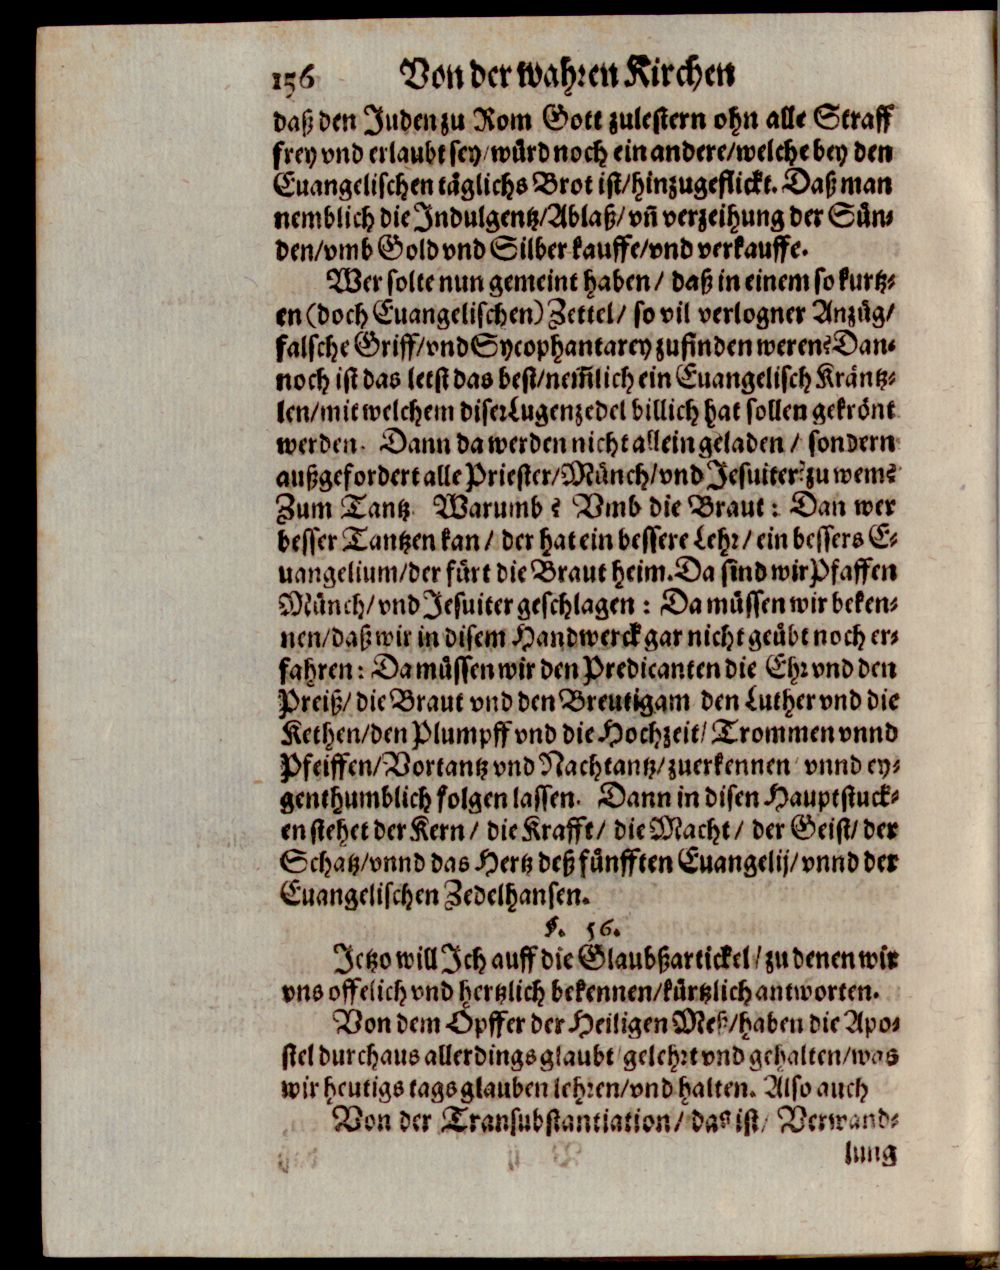 156 Von der wahren Kirchen
daß den Juden zu Rom Gott zulestern ohn alle Straff
frey vnd erlaubt sey/würd noch ein andere/welche bey den
Euangelischen täglichs Brot ist/hinzugeflickt. Daß man
nemblich die Indulgentz/Ablaß/vñ verzeihung der Sün-
den/vmb Gold vnd Silber kauffe/vnd verkauffe.
Wer solte nun gemeint haben/ daß in einem so kurtz-
en (doch Euangelischen) Zettel/ so vil verlogner Anzüg/
falsche Griff/vnd Sycophantarey zufinden weren? Dan-
noch ist das letst das best/nem̃lich ein Euangelisch Kräntz-
len/mit welchem diser Lugenzedel billich hat sollen gekrönt
werden. Dann da werden nicht allein geladen / sondern
außgefordert alle Priester/Münch/vnd Jesuiter? zu wem?
Zum Tantz Warumb ? Vmb die Braut : Dan wer
besser Tantzen kan / der hat ein bessere Lehr/ ein bessers E-
uangelium/der fürt die Braut heim. Da sind wir Pfaffen
Münch/vnd Jesuiter geschlagen : Da müssen wir beken-
nen/daß wir in disem Handwerck gar nicht geübt noch er-
fahren : Da müssen wir den Predicanten die Ehr vnd den
Preiß/ die Braut vnd den Breutigam den Luther vnd die
Kethen/den Plumpff vnd die Hochzeit/ Trommen vnnd
Pfeiffen/Vortantz vnd Nachtantz/zuerkennen vnnd ey-
genthumblich folgen lassen. Dann in disen Hauptstuck-
en stehet der Kern / die Krafft/ die Macht / der Geist/ der
Schatz/vnnd das Hertz deß fünfften Euangelij/ vnnd der
Euangelischen Zedelhansen.
§. 56.
Jetzo will Ich auff die Glaubßartickel / zu denen wir
vns offelich vnd hertzlich bekennen/kürtzlich antworten.
Von dem Opffer der Heiligen Meß/haben die Apo-
stel durchaus allerdings glaubt gelehrt vnd gehalten/was
wir heutigs tags glauben lehren/vnd halten. Also auch
Von der Transubstantiation / das ist/ Verwand-
lung